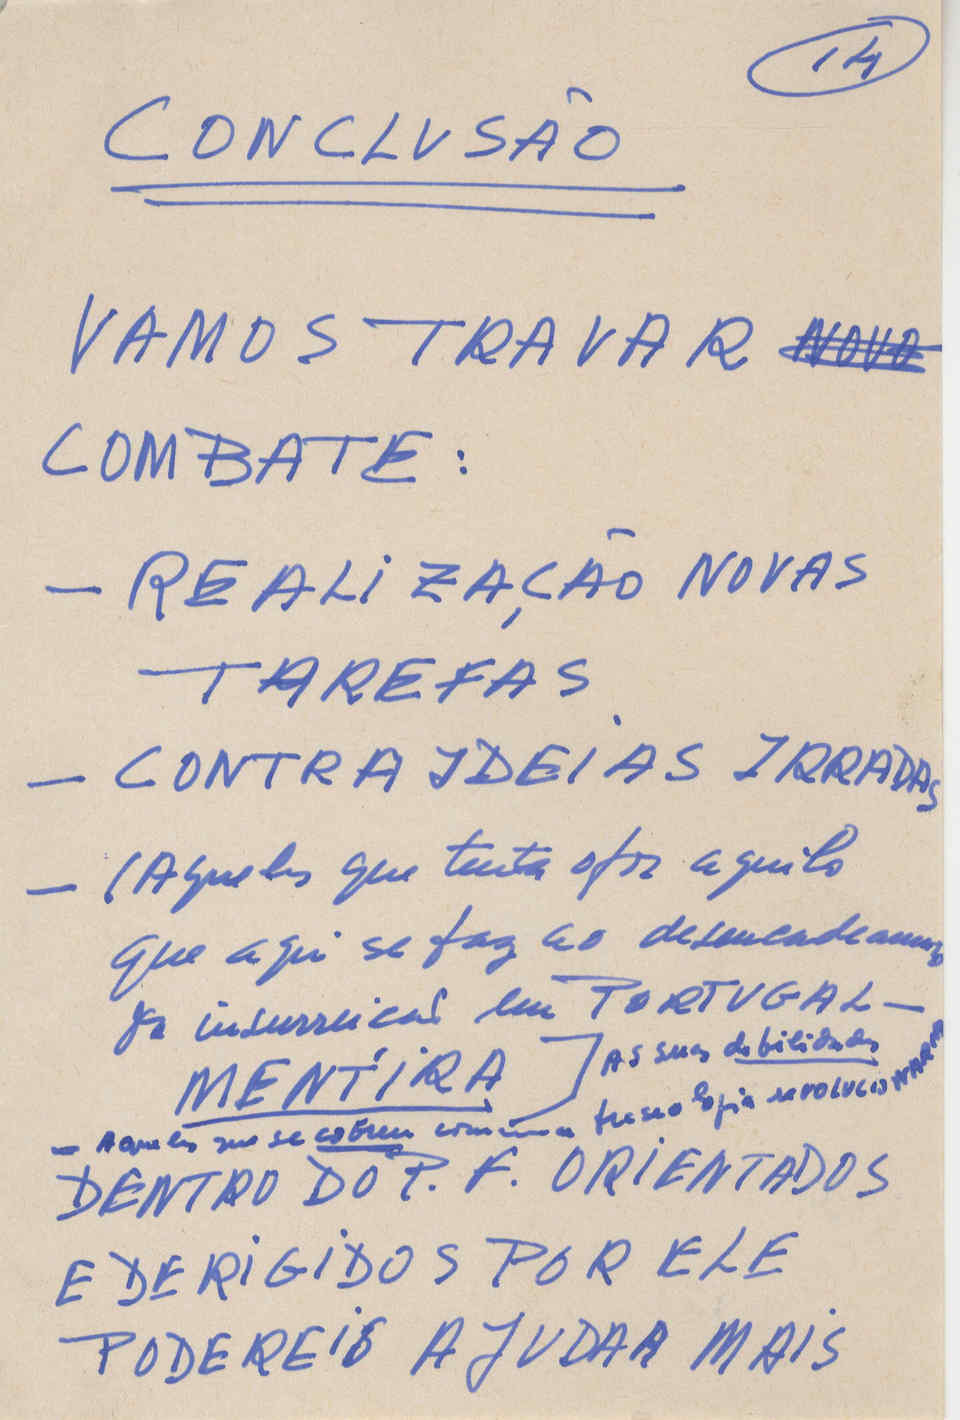 14
CONCLUSÃO
VAMOS TRAVAR NOVO
COMBATE:
- REALIZAÇÃO NOVAS
TAREFAS
- CONTRA IDEIAS IRRADAS
- (Aqueles que tenta opor aquilo
que aqui se faz ao
da insurreicaõ em PORTUGAL -
MENTIRA
As suas debilidades
- Aqueles que se cobrem com uma fraseologia REVOLUCIONARIA
DENTRO DO P. F. ORIENTADOS
E DERIGIDOS POR ELE
PODEREIS AJUDAR MAIS